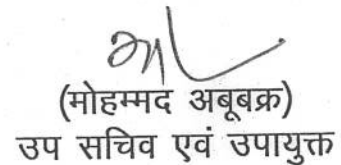 (मोहम्मद अबूबक्र)
उप सचिव एवं उपायुक्त